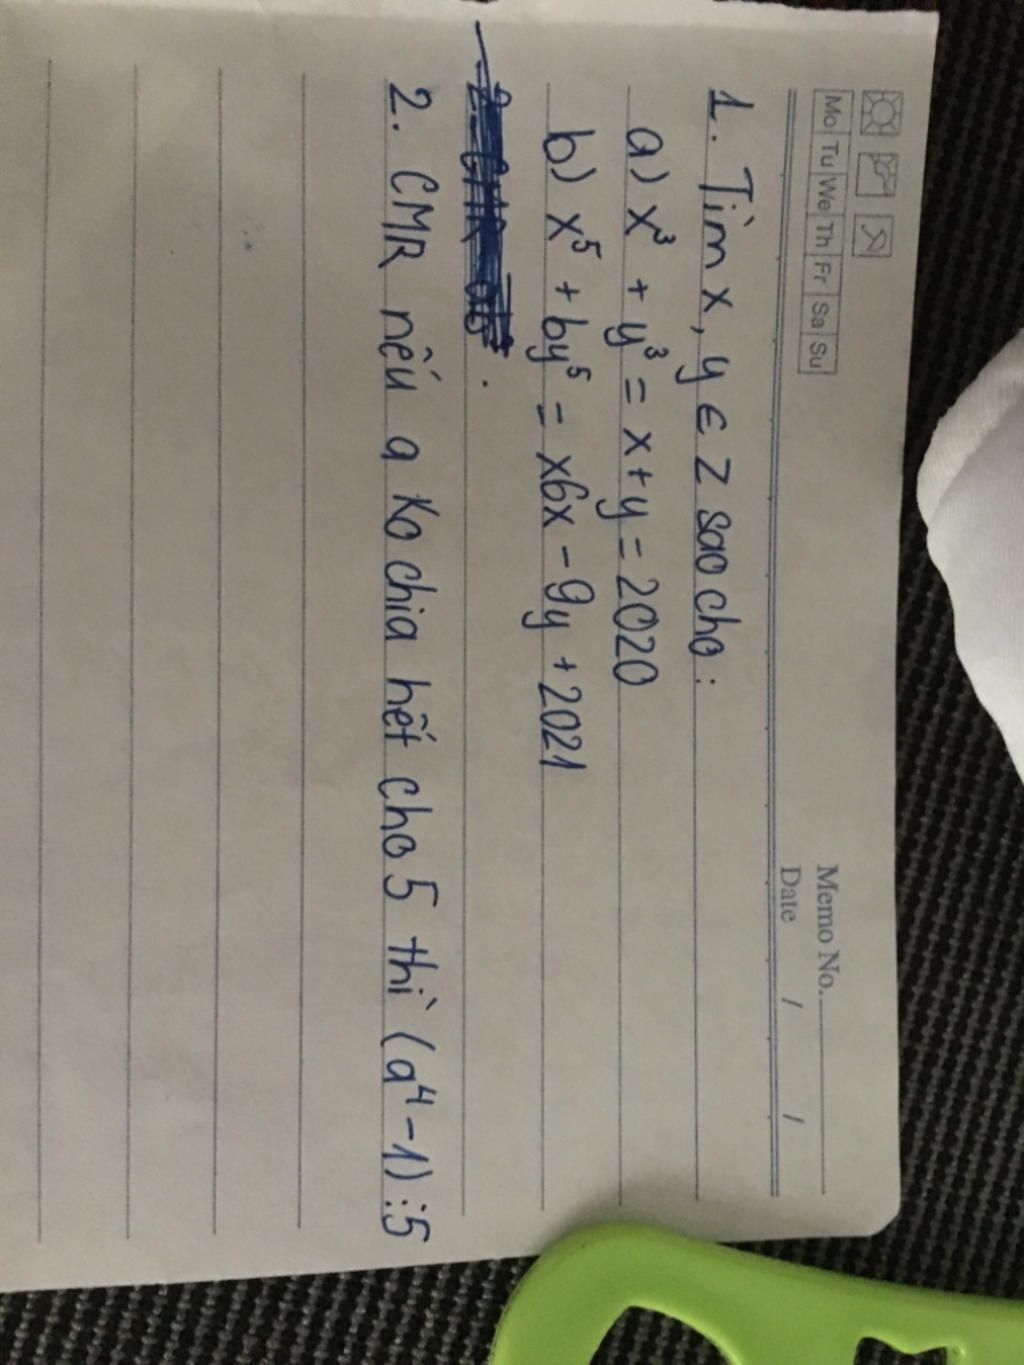 Memo No.
Mo Tu We Th Fr Sa Su
Date / /
1. Tìm x, y ∈ Z sao cho:
a) x³ + y³ = x + y = 2020
b) x⁵ + by⁵ = x6x - 9y + 2021
2. CMR nếu a ko chia hết cho 5 thì (a⁴-1) : 5